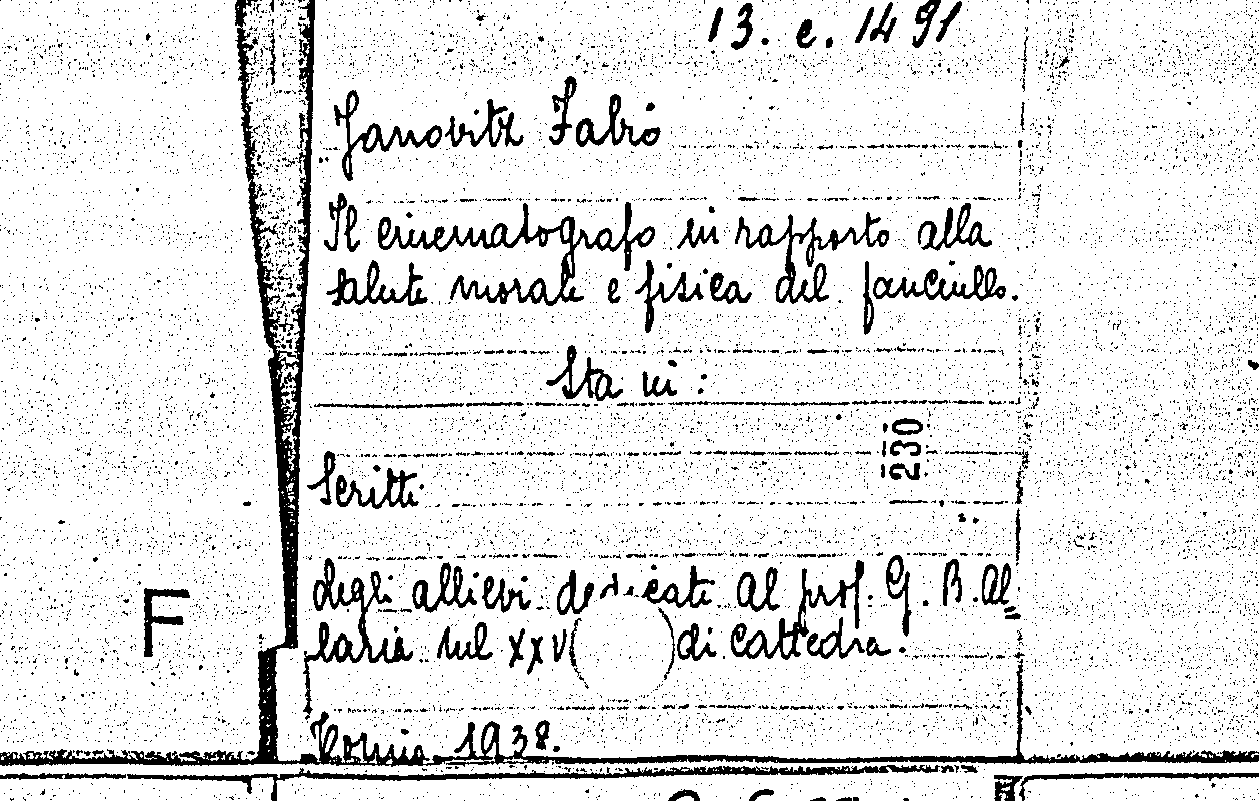 13. e. 1491
Janovitz Fabio
Il cinematografo in rapporto alla
salute morale e fisica del fanciullo.
Sta in:
230
Scritti
degli allievi dedicati al prof. G. B. Al
laria sul XXV di cattedra.
F
1938.